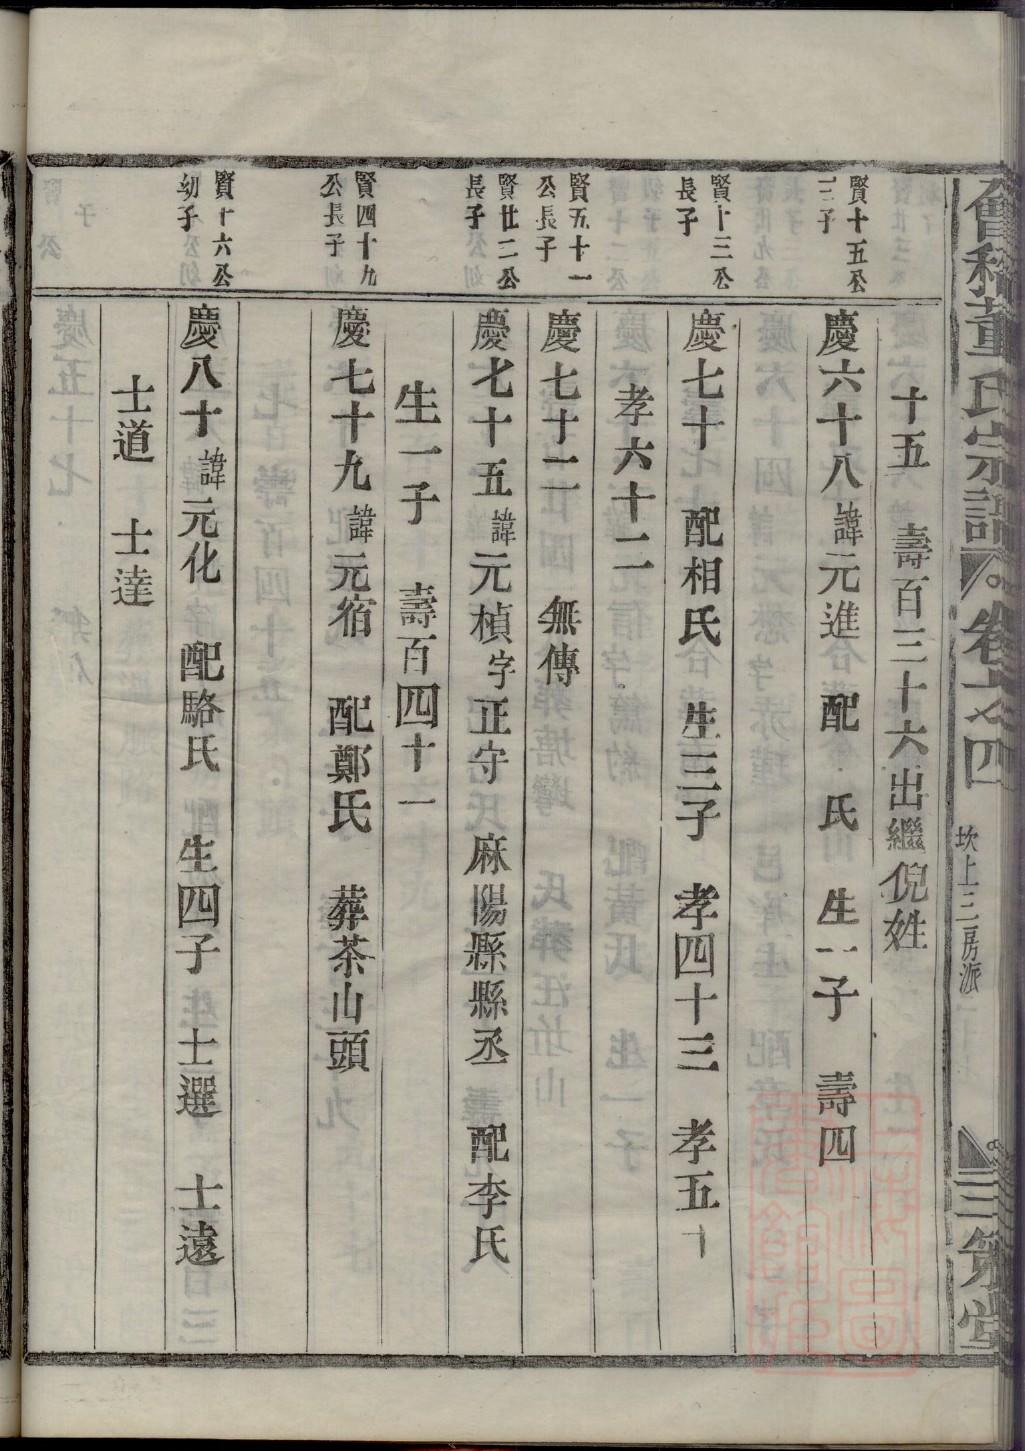 會稽董氏宗譜
卷六之四
坎上三房派
三策堂
十五　壽百三十六出繼倪姓
賢十五公
三子
慶六十八諱元進　配　氏　生一子　壽四
賢十三公
長子
慶七十　配相氏　生三子　孝四十三　孝五十
孝六十二
賢五十一
公長子
慶七十二　無傳
賢廿二公
長子
慶七十五諱元楨字正守　麻陽縣縣丞　配李氏
生一子　壽百四十一
賢四十九
公長子
慶七十九諱元宿　配鄭氏　葬茶山頭
賢十六公
幼子
慶八十諱元化　配駱氏　生四子　士選　士遠
士道　士達